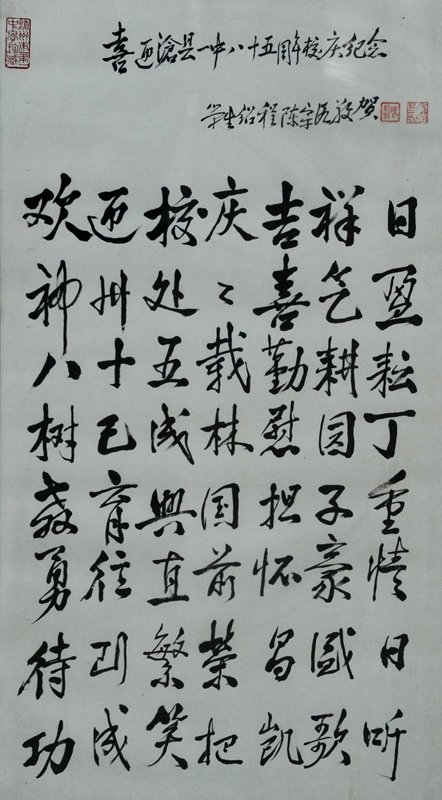 喜迎滄县一中八十五周年校庆纪念
学生绍程陈宗敬贺
欢迎校庆吉祥日
神州处々喜气盈
八十五载勤耕耘
树已成林慰园丁
教育興国担子重
勇往直前怀豪情
待到繁荣昌盛日
功成笑把凯歌听